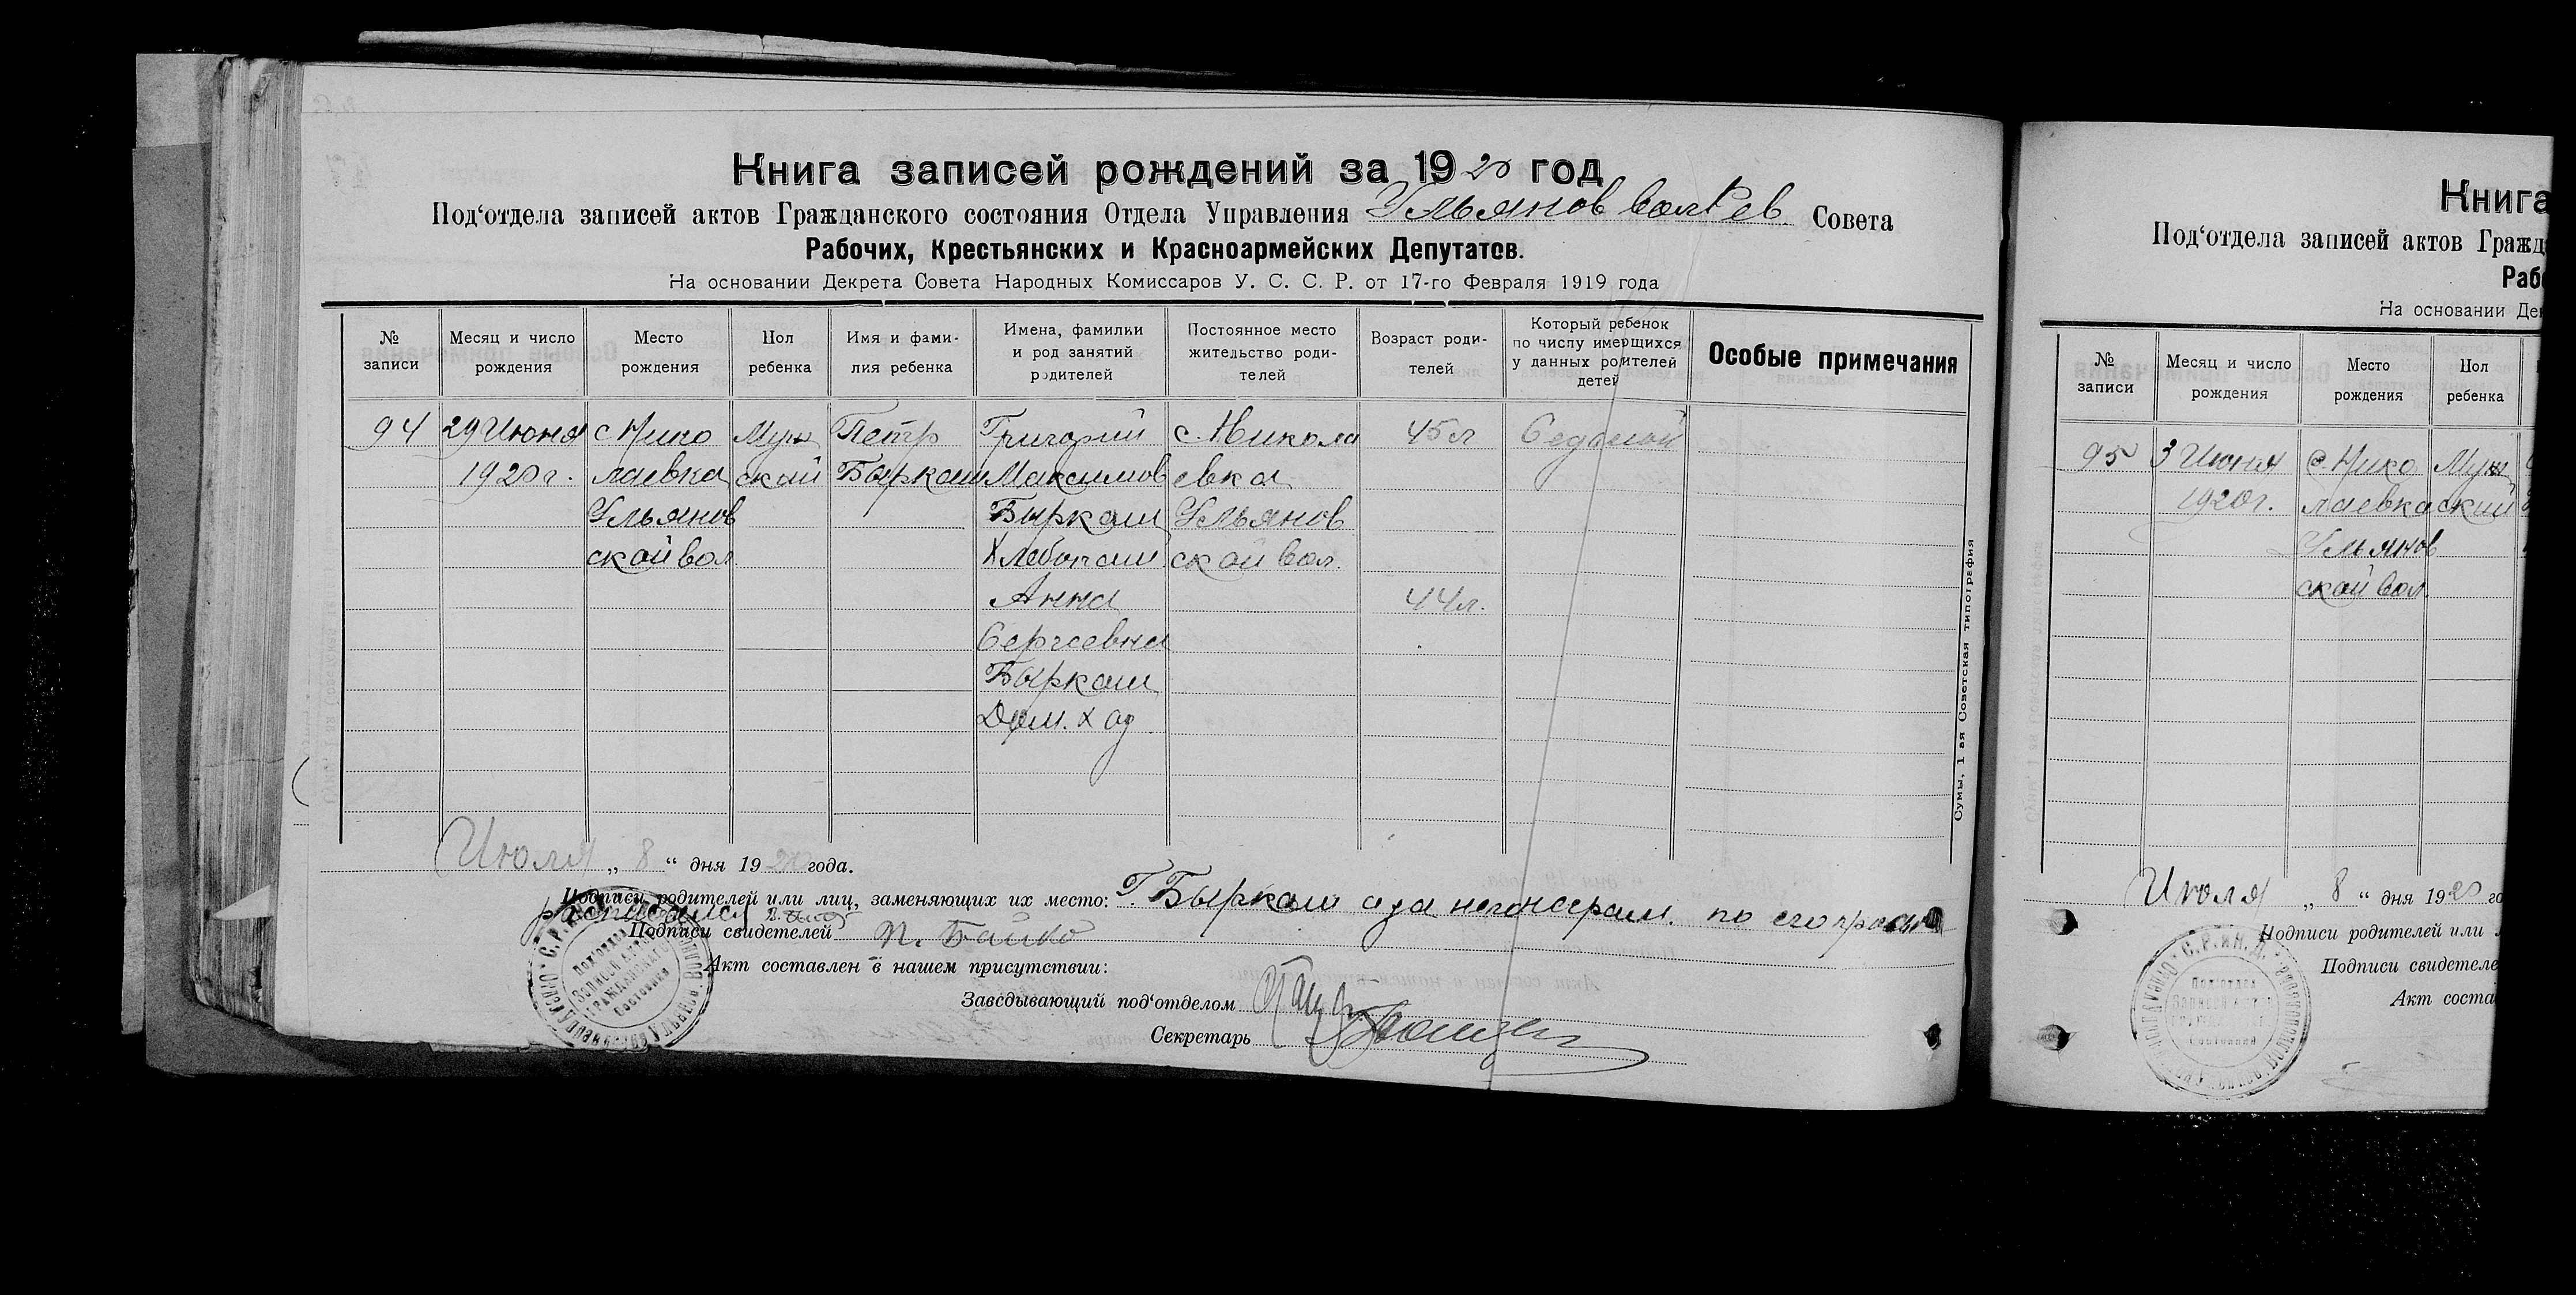 Книга записей рождений за 1920 год
Под‘отдела записей актов Гражданского состояния Отдела Управления Ульянов вол Рев Совета
Рабочих, Крестьянских и Красноармейских Депутатов.
На основании Декрета Совета Народных Комиссаров У. С. С. Р. от 17-го Февраля 1919 года
№ записи
Месяц и число рождения
Место рождения
Пол ребенка
Имя и фами-
лия ребенка
Имена, фамилии
и род занятий
родителей
Постоянное место
жительство роди-
телей
Возраст роди-
телей
Который ребенок
по числу имеющихся
у данных родителей
детей
Особые примечания
94
29 Июня
1920 г.
с Нико
лаевка
Ульянов
ской вол
Муж
ской
Петр
Быркаш
Григорий
Максимов
Быркаш
Хлебопаш
Анна
Сергеевна
Быркаш
Дом. хоз
с. Никола
евка
Ульянов
ской вол.
45 л
44 л.
Седьмой
Сумы, 1 ая Советская типография
Июля „ 8 “ дня 1920 года.
Подписи родителей или лиц, заменяющих их место: Г. Быркаш а за неграмотн. по его просьбе
расписался
Подписи свидетелей П. Бойко
Акт составлен в нашем присутствии:
Заведывающий под‘отделом
Секретарь
Книга
Под‘отдела записей актов Гражд
Раб
На основании Де
№ записи
Месяц и число рождения
Место рождения
Пол ребенка
95
3 Июня
1920 г.
с. Нико
лаевка
Ульянов
ской вол
Муж
ский
Июля „ 8 “ дня 1920 го
Подписи родителей или
Подписи свидетеле
Акт соста